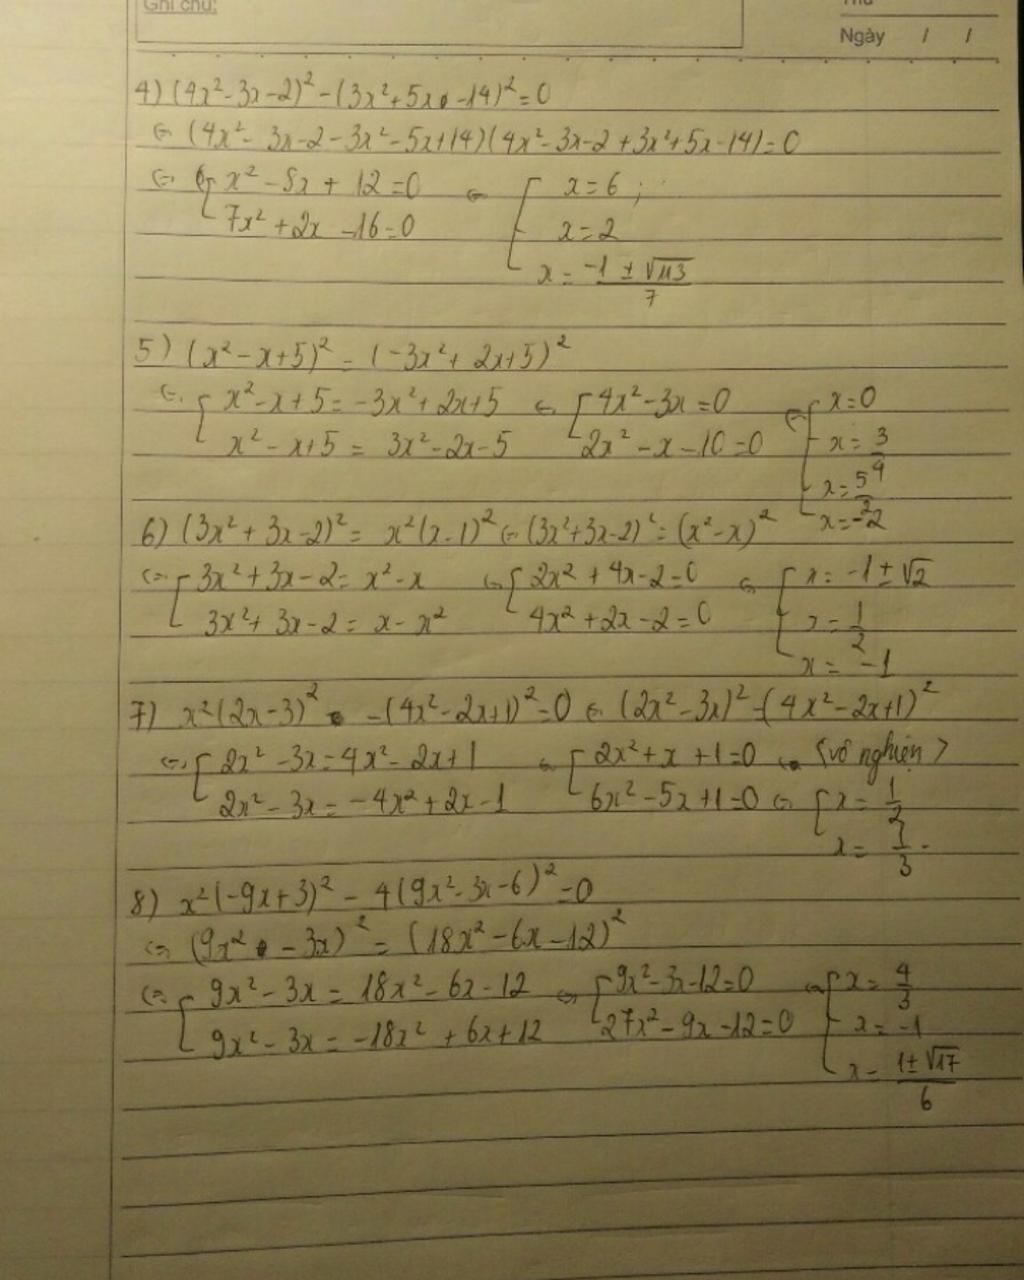 Ghi chú:
Thứ
Ngày / /
4) (4x² - 3x - 2)² - (3x² + 5x - 14)² = 0
⇔ (4x² - 3x - 2 - 3x² - 5x + 14)(4x² - 3x - 2 + 3x² + 5x - 14) = 0
⇔ [ x² - 8x + 12 = 0 ⇔ [ x = 6 ;
7x² + 2x - 16 = 0 x = 2
x = (-1 ± √113)/7
5) (x² - x + 5)² = (-3x² + 2x + 5)²
⇔ [ x² - x + 5 = -3x² + 2x + 5 ⇔ [ 4x² - 3x = 0 ⇔ [ x = 0
x² - x + 5 = 3x² - 2x - 5 2x² - x - 10 = 0 x = 3/4
x = 5/2
x = -2
6) (3x² + 3x - 2)² = x²(x - 1)² ⇔ (3x² + 3x - 2)² = (x² - x)²
⇔ [ 3x² + 3x - 2 = x² - x ⇔ [ 2x² + 4x - 2 = 0 ⇔ [ x = -1 ± √2
3x² + 3x - 2 = x - x² 4x² + 2x - 2 = 0 x = 1/2
x = -1
7) x²(2x - 3)² - (4x² - 2x + 1)² = 0 ⇔ (2x² - 3x)² - (4x² - 2x + 1)²
⇔ [ 2x² - 3x = 4x² - 2x + 1 ⇔ [ 2x² + x + 1 = 0 ⇔ (vô nghiện)
2x² - 3x = -4x² + 2x - 1 6x² - 5x + 1 = 0 ⇔ [ x = 1/2
x = 1/3
8) x²(-9x + 3)² - 4(9x² - 3x - 6)² = 0
⇔ (9x² - 3x)² = (18x² - 6x - 12)²
⇔ [ 9x² - 3x = 18x² - 6x - 12 ⇔ [ 9x² - 3x - 12 = 0 ⇔ [ x = 4/3
9x² - 3x = -18x² + 6x + 12 27x² - 9x - 12 = 0 x = -1
x = (1 ± √17)/6